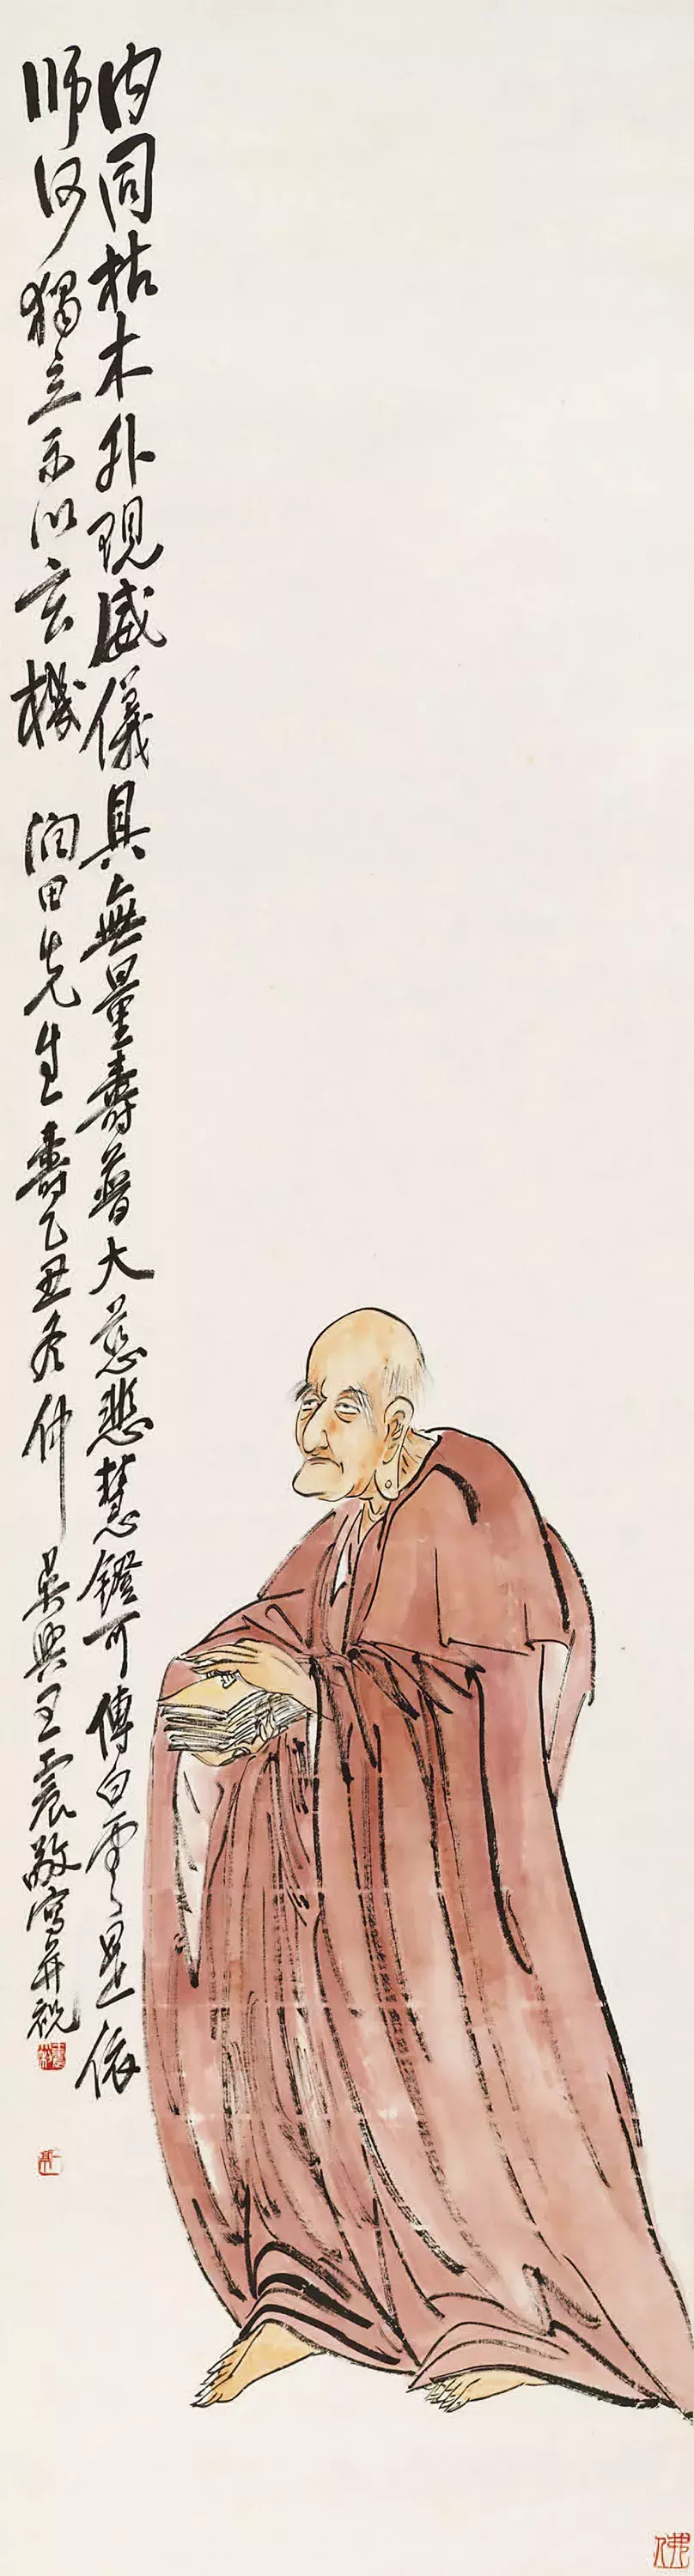 内同枯木外現威儀具無量壽普大慈悲慧鐙可傳白雲是依
師何獨立示以玄機 润田先生壽乙丑冬仲 吳興王震敬寫并祝
佛